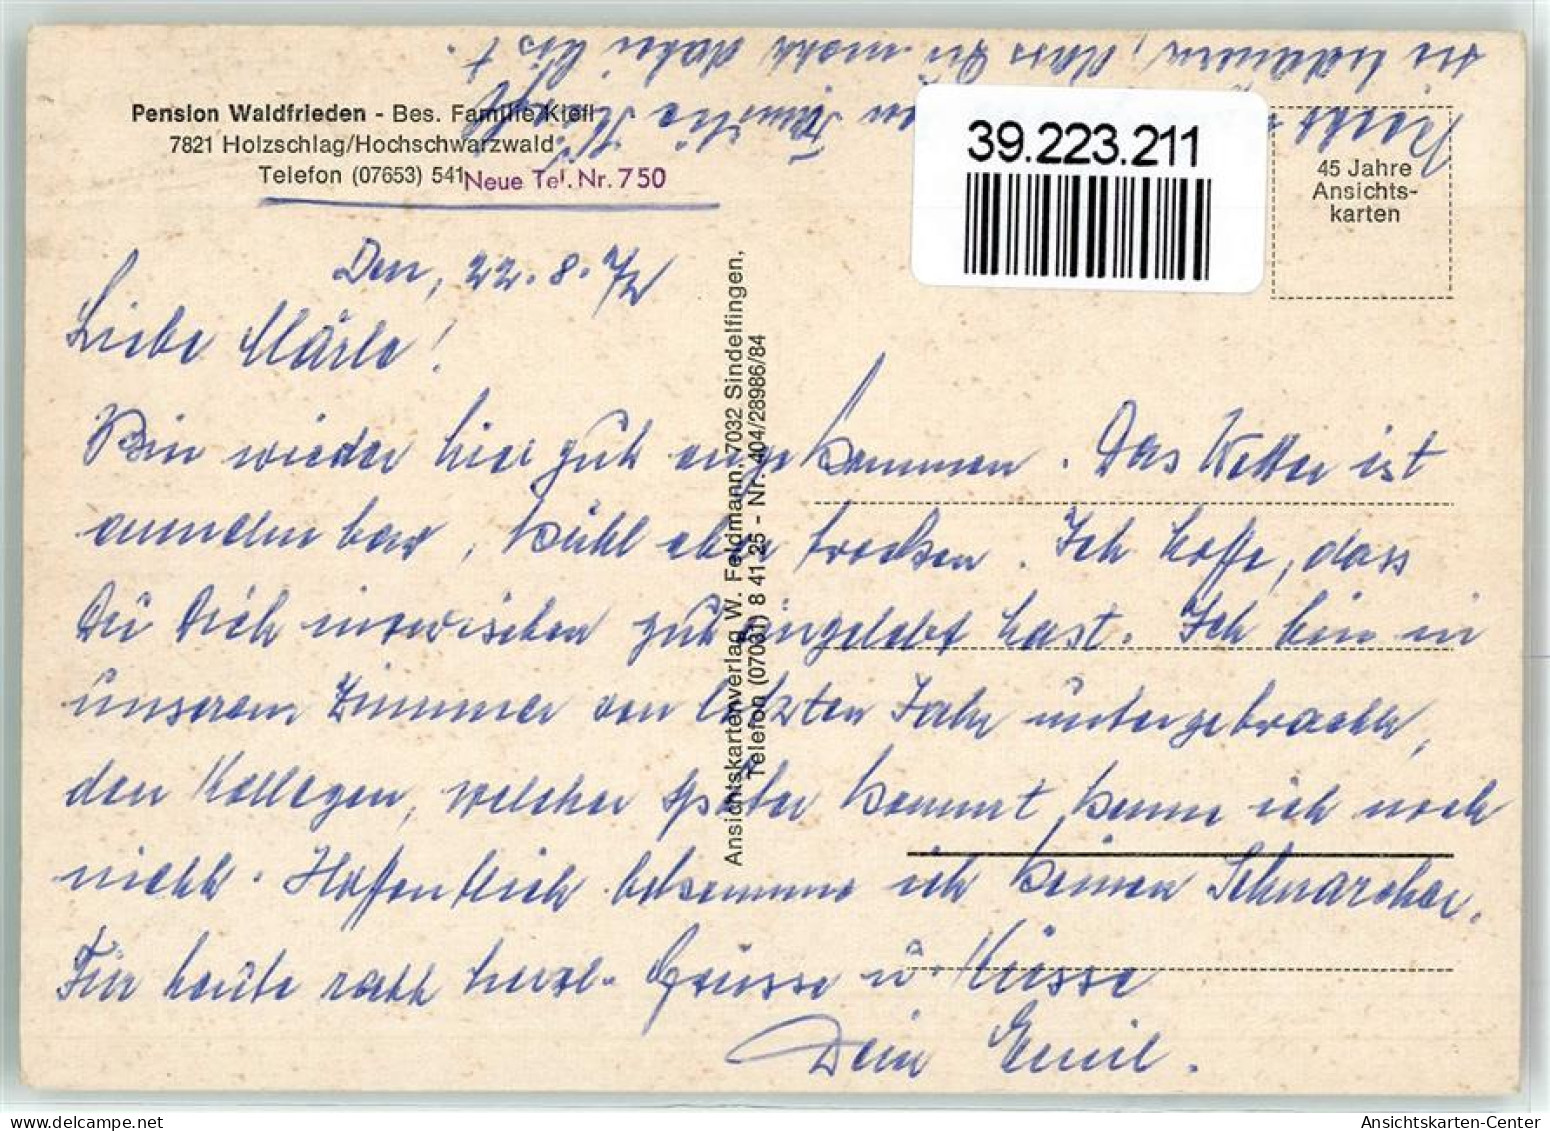 Pension Waldfrieden - Bes. Familie Kiefl
7821 Holzschlag/Hochschwarzwald
Telefon (07653) 541 Neue Tel. Nr. 750
39.223.211
45 Jahre
Ansichts-
karten
Ansichtskartenverlag W. Feldmann, 7032 Sindelfingen,
Telefon (07031) 8 41 25 - Nr. 404/28986/84
Den, 22.8.72
Liebe Märle!
Bin wieder hier gut angekommen. Das Wetter ist
wunderbar, kühl aber trocken. Ich hoffe, dass
Du Dich inzwischen gut eingelebt hast. Ich bin in
unserem Zimmer von letzten Jahr untergebracht,
den Kollegen, welcher später kommt kenne ich noch
nicht. Hoffentlich bekomme ich keinen Schnarcher.
Für heute recht herzl. Grüsse u. Küsse
Dein Emil.
Recht von Familie Kiefl
sie bedauern, dass Du nicht dabei bist.
Ansichtskarten-Center